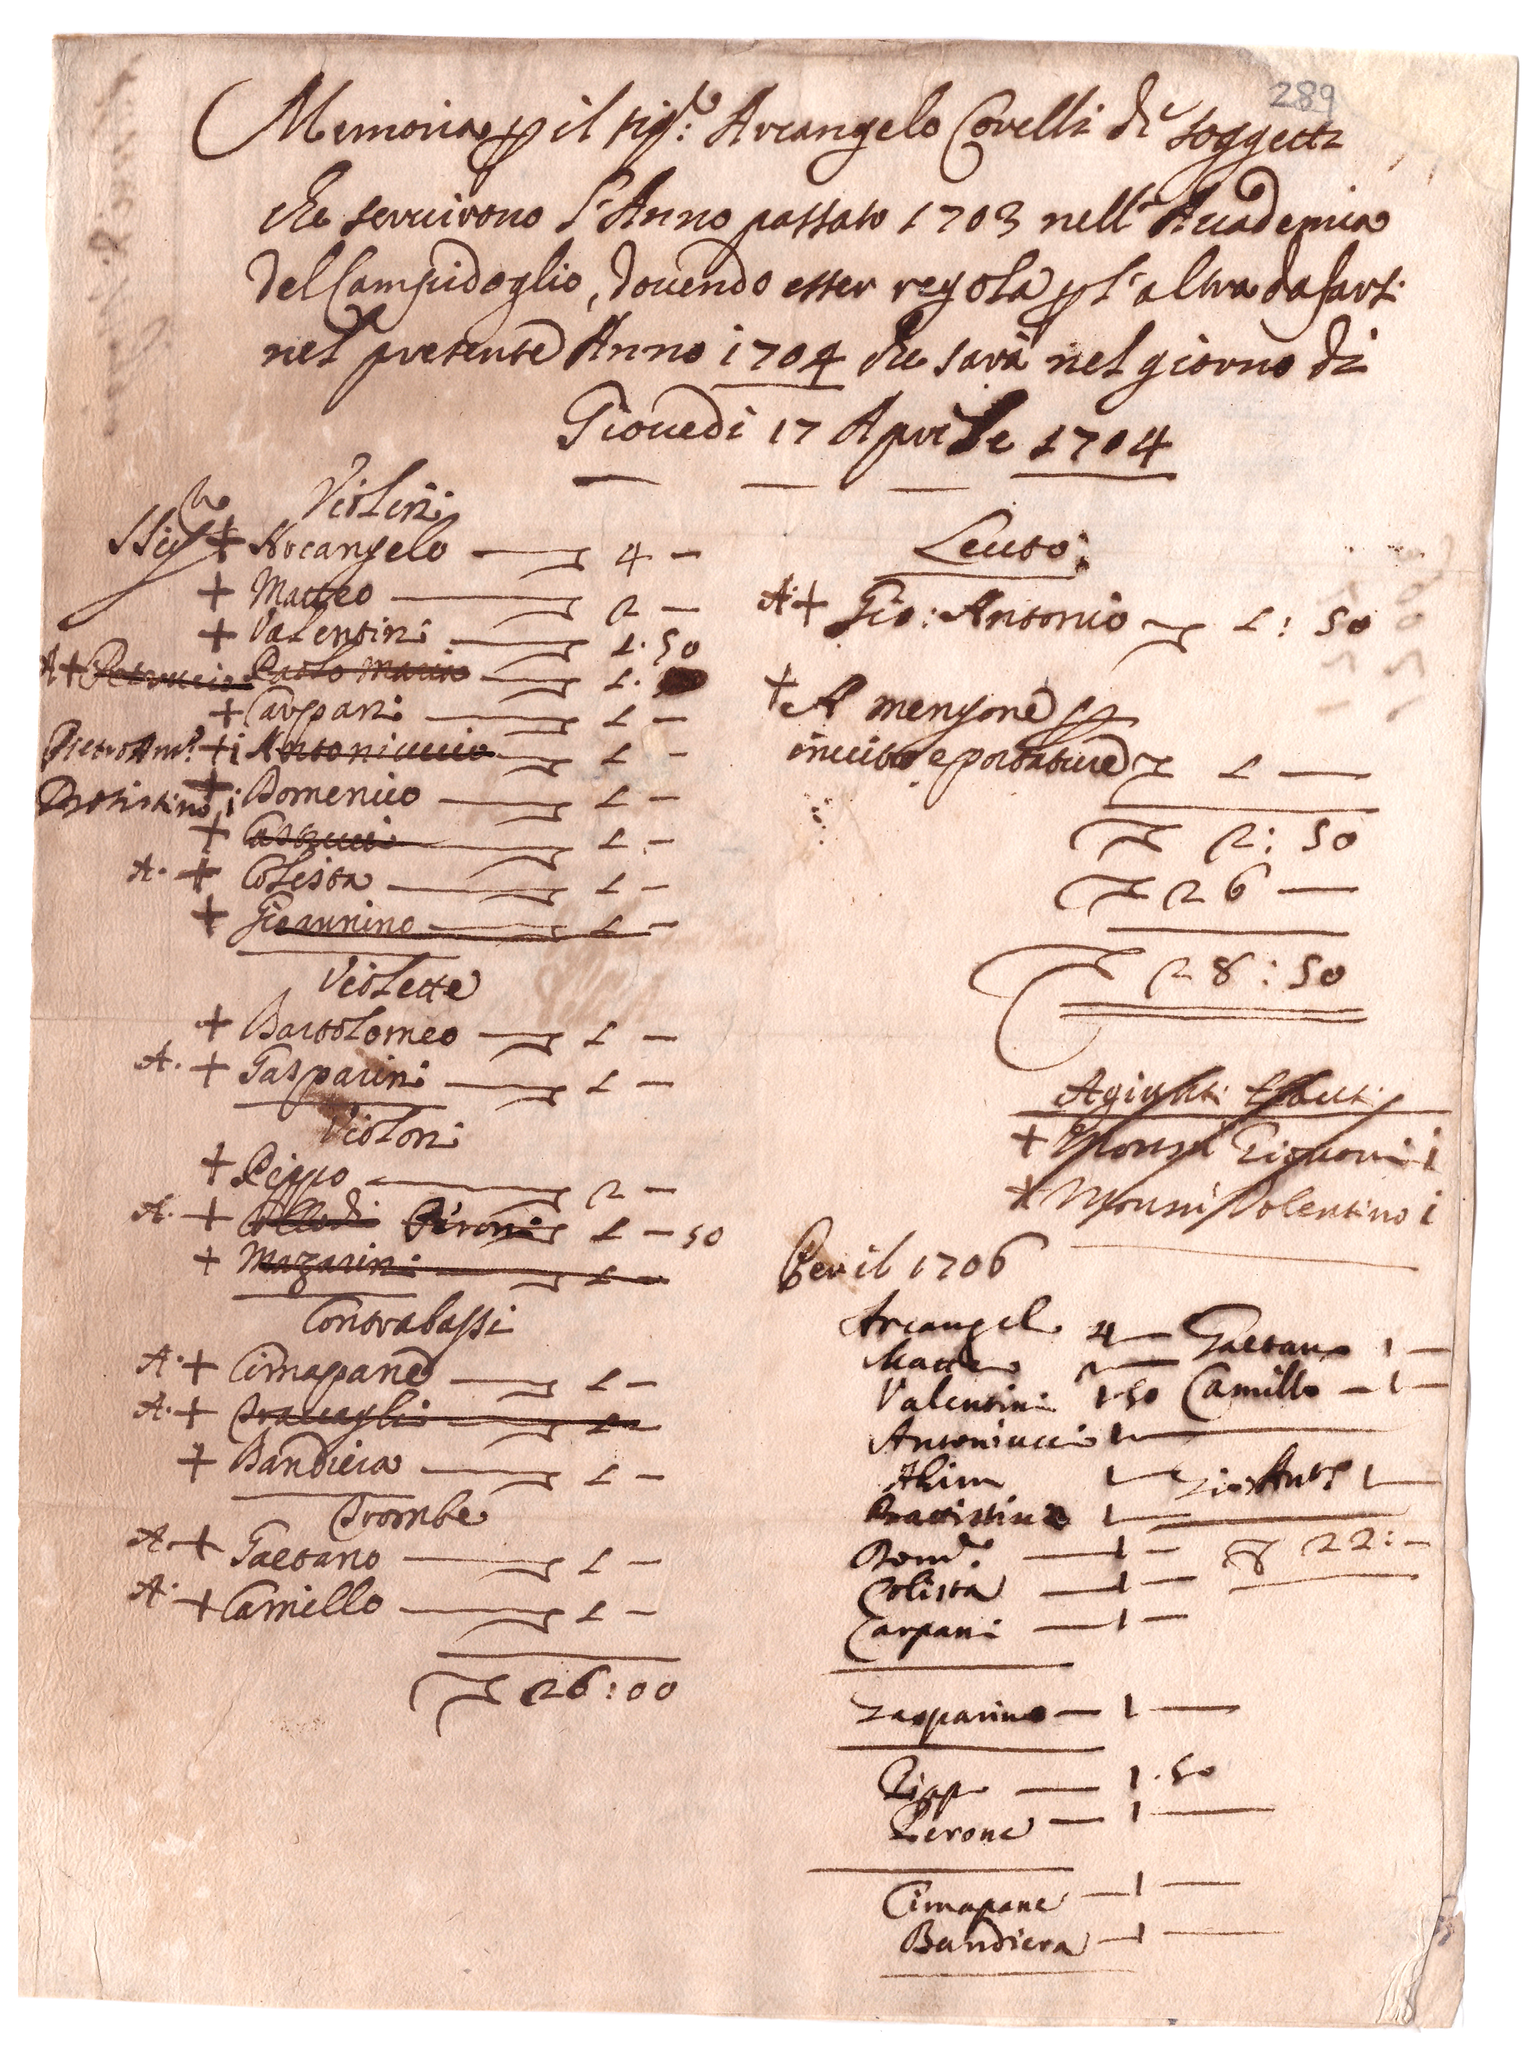 289
Memoria p il sig.r Arcangelo Corelli di soggetti
che servirono l'Anno passato 1703 nell'Accademia
del Campidoglio, dovendo esser regola p l'altra da farsi
nel presente Anno 1704 che sarà nel giorno di
Giovedi 17 Aprile 1704
Violini
SSig.ri + Arcangelo 4 —
+ Matteo 2 —
+ Valentini 1. 50
A + Petruccio Paolo Maria 1.
+ Carpani 1 —
Pietro Ant.o + i Antoniuccio 1 —
Battistino i + Domenico 1 —
+ Castrucci 1 —
A. + Colista 1 —
+ Giovannino 1 —
Violette
+ Bartolomeo 1 —
A. + Gasparini 1 —
Violoni
+ Pippo 2 —
A. + Peroni 1 — 50
+ Mazarini 1 —
Contrabassi
A. + Cimapane 1 —
A. + Travaglia 1 —
+ Bandiera 1 —
Trombe
A. + Gaetano 1 —
A. + Camillo 1 —
26:00
Leuto
A: + Gio: Antonio 1: 50
+ A mengone p
invito, e portature 1 —
2: 50
26 —
28: 50
Agiunti
+ i
+ Tolentino i
Per il 1706
Arcangelo 4 — Gaetano 1 —
Matteo 2 —
Valentini 1.50 Camillo — 1 —
Antoniucci 1 —
1 — Gio: Ant.o 1 —
Battistino 1 —
Dom.co — 1 — 22: —
Colista — 1 —
Carpani — 1 —
Gasparino — 1 —
Pippo — 1.50
Perone — 1 —
Cimapane — 1 —
Bandiera — 1 —